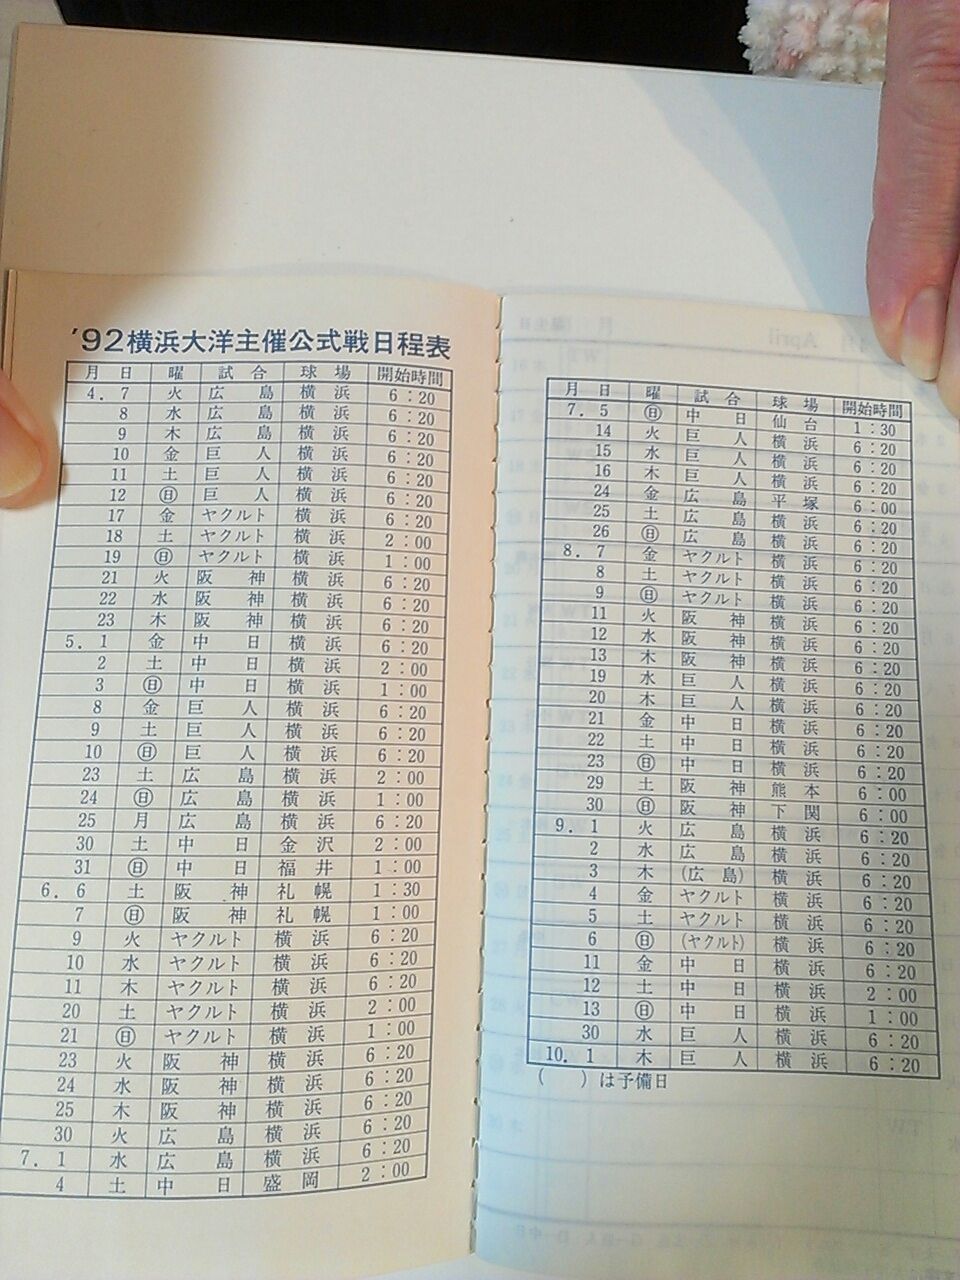 '92横浜大洋主催公式戦日程表
月 日 曜 試 合 球 場 開始時間
4. 7 火 広 島 横 浜 6:20
8 水 広 島 横 浜 6:20
9 木 広 島 横 浜 6:20
10 金 巨 人 横 浜 6:20
11 土 巨 人 横 浜 6:20
12 ㊐ 巨 人 横 浜 6:20
17 金 ヤクルト 横 浜 6:20
18 土 ヤクルト 横 浜 2:00
19 ㊐ ヤクルト 横 浜 1:00
21 火 阪 神 横 浜 6:20
22 水 阪 神 横 浜 6:20
23 木 阪 神 横 浜 6:20
5. 1 金 中 日 横 浜 6:20
2 土 中 日 横 浜 2:00
3 ㊐ 中 日 横 浜 1:00
8 金 巨 人 横 浜 6:20
9 土 巨 人 横 浜 6:20
10 ㊐ 巨 人 横 浜 6:20
23 土 広 島 横 浜 2:00
24 ㊐ 広 島 横 浜 1:00
25 月 広 島 横 浜 6:20
30 土 中 日 金 沢 2:00
31 ㊐ 中 日 福 井 1:00
6. 6 土 阪 神 札 幌 1:30
7 ㊐ 阪 神 札 幌 1:00
9 火 ヤクルト 横 浜 6:20
10 水 ヤクルト 横 浜 6:20
11 木 ヤクルト 横 浜 6:20
20 土 ヤクルト 横 浜 2:00
21 ㊐ ヤクルト 横 浜 1:00
23 火 阪 神 横 浜 6:20
24 水 阪 神 横 浜 6:20
25 木 阪 神 横 浜 6:20
30 火 広 島 横 浜 6:20
7. 1 水 広 島 横 浜 6:20
4 土 中 日 盛 岡 2:00
月 日 曜 試 合 球 場 開始時間
7. 5 ㊐ 中 日 仙 台 1:30
14 火 巨 人 横 浜 6:20
15 水 巨 人 横 浜 6:20
16 木 巨 人 横 浜 6:20
24 金 広 島 平 塚 6:00
25 土 広 島 横 浜 6:20
26 ㊐ 広 島 横 浜 6:20
8. 7 金 ヤクルト 横 浜 6:20
8 土 ヤクルト 横 浜 6:20
9 ㊐ ヤクルト 横 浜 6:20
11 火 阪 神 横 浜 6:20
12 水 阪 神 横 浜 6:20
13 木 阪 神 横 浜 6:20
19 水 巨 人 横 浜 6:20
20 木 巨 人 横 浜 6:20
21 金 中 日 横 浜 6:20
22 土 中 日 横 浜 6:20
23 ㊐ 中 日 横 浜 6:20
29 土 阪 神 熊 本 6:00
30 ㊐ 阪 神 下 関 6:00
9. 1 火 広 島 横 浜 6:20
2 水 広 島 横 浜 6:20
3 木 (広 島) 横 浜 6:20
4 金 ヤクルト 横 浜 6:20
5 土 ヤクルト 横 浜 6:20
6 ㊐ (ヤクルト) 横 浜 6:20
11 金 中 日 横 浜 6:20
12 土 中 日 横 浜 2:00
13 ㊐ 中 日 横 浜 1:00
30 水 巨 人 横 浜 6:20
10. 1 木 巨 人 横 浜 6:20
( )は予備日